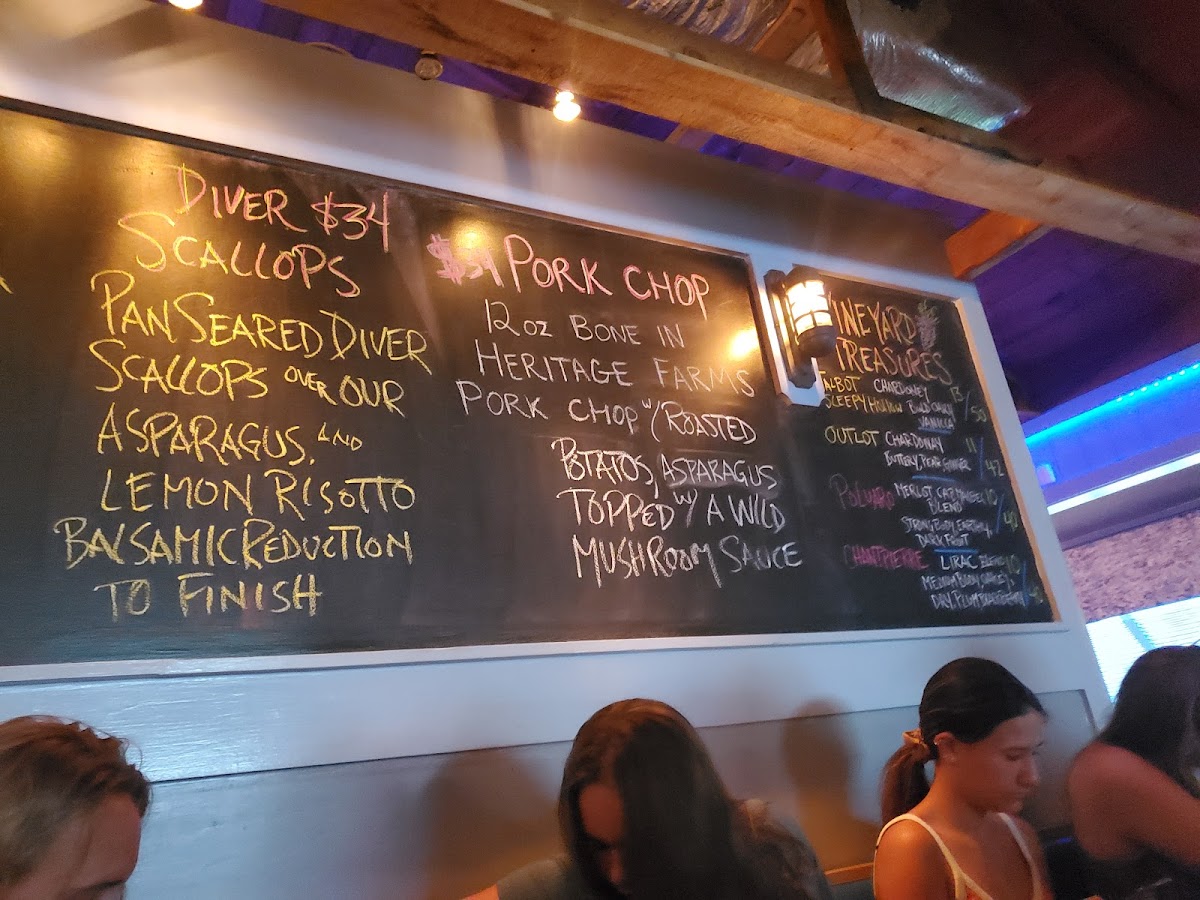 DIVER $34
SCALLOPS
PAN SEARED DIVER
SCALLOPS OVER OUR
ASPARAGUS, AND
LEMON RISOTTO
BALSAMIC REDUCTION
TO FINISH
PORK CHOP
12 OZ BONE IN
HERITAGE FARMS
PORK CHOP W/ ROASTED
POTATOS, ASPARAGUS
TOPPED W/ A WILD
MUSHROOM SAUCE
VINEYARD
TREASURES
TALBOT CHARDONNEY 13/50
SLEEPY HOLLOW
VANILLA
OUTLOT CHARDONAY 11/42
BUTTERY, PEAR,
MERLOT 10/40
BLEND
STRONG BODY, EARTHY,
DARK FRUIT
LIRAC BLEND 10
MEDIUM BODY,
DRY, PLUM